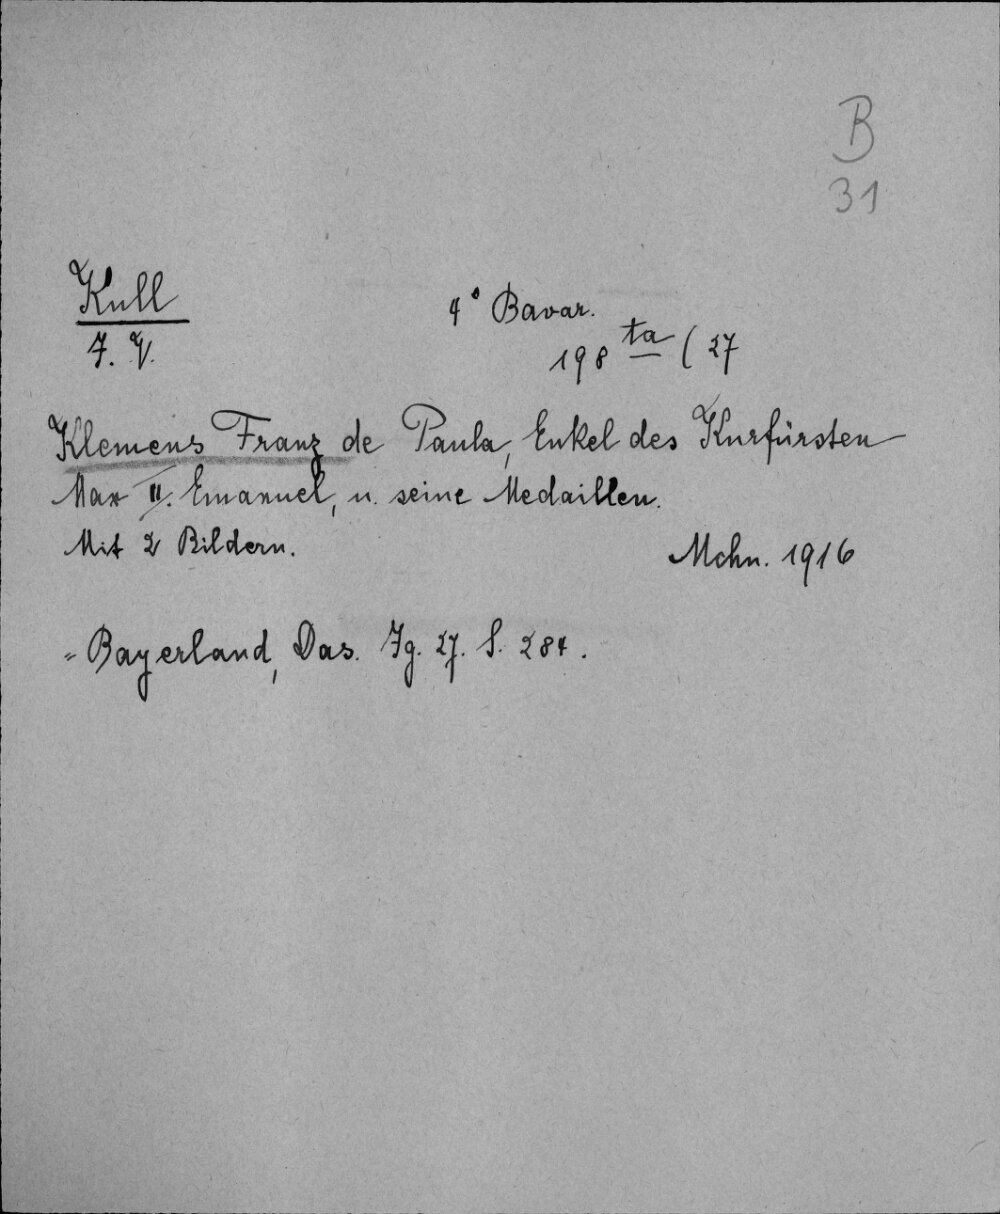 B
31
Kull
J. V.
4° Bavar.
198 ta (27
Klemens Franz de Paula, Enkel des Kurfürsten
Max II. Emanuel, u. seine Medaillen.
Mit 2 Bildern.
Mchn. 1916
= Bayerland, Das. Jg. 27. S. 284.